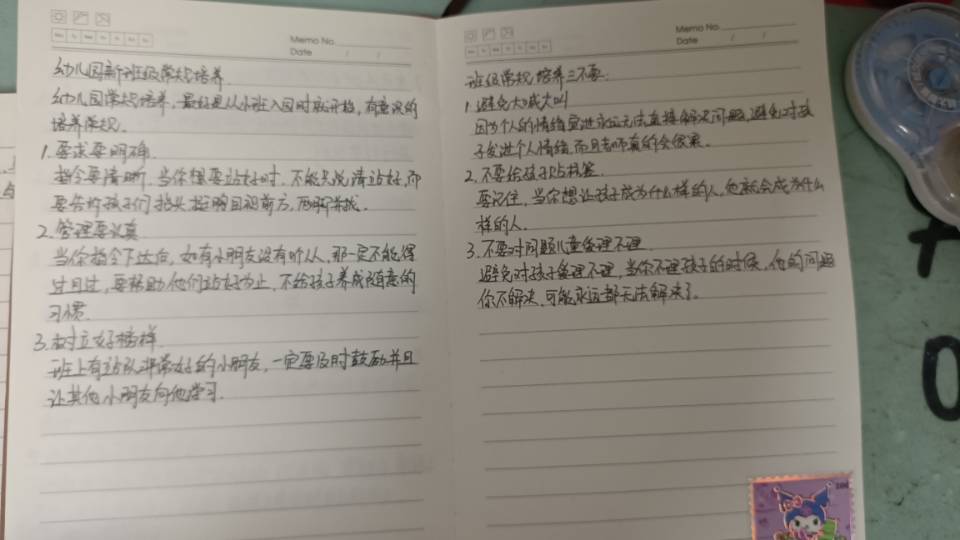 Memo No.
Date / /
幼儿园新班级常规培养
幼儿园常规培养,最好是从小班入园时就开始,有意识的
培养常规.
1.要求要明确.
指令要清晰,当你想要站好时,不能只说请站好,而
要告诉孩子们抬头挺胸目视前方,两脚并拢.
2.管理要认真
当你指令下达后,如有小朋友没有听从,那一定不能得
过且过,要帮助他们站好为止,不给孩子养成随意的
习惯.
3.树立好榜样.
班上有站队非常好的小朋友,一定要及时鼓励并且
让其他小朋友向他学习.
Memo No.
Date / /
班级常规培养三不要:
1.避免大喊大叫
因为个人的情绪宣泄永远无法直接解决问题,避免对孩
子发泄个人情绪,而且老师真的会很累.
2.不要给孩子贴标签.
要记住,当你想让孩子成为什么样的人,他就会成为什么
样的人.
3.不要对问题儿童置理不理
避免对孩子爱理不理,当你不理孩子的时候,他的问题
你不解决,可能永远都无法解决了.